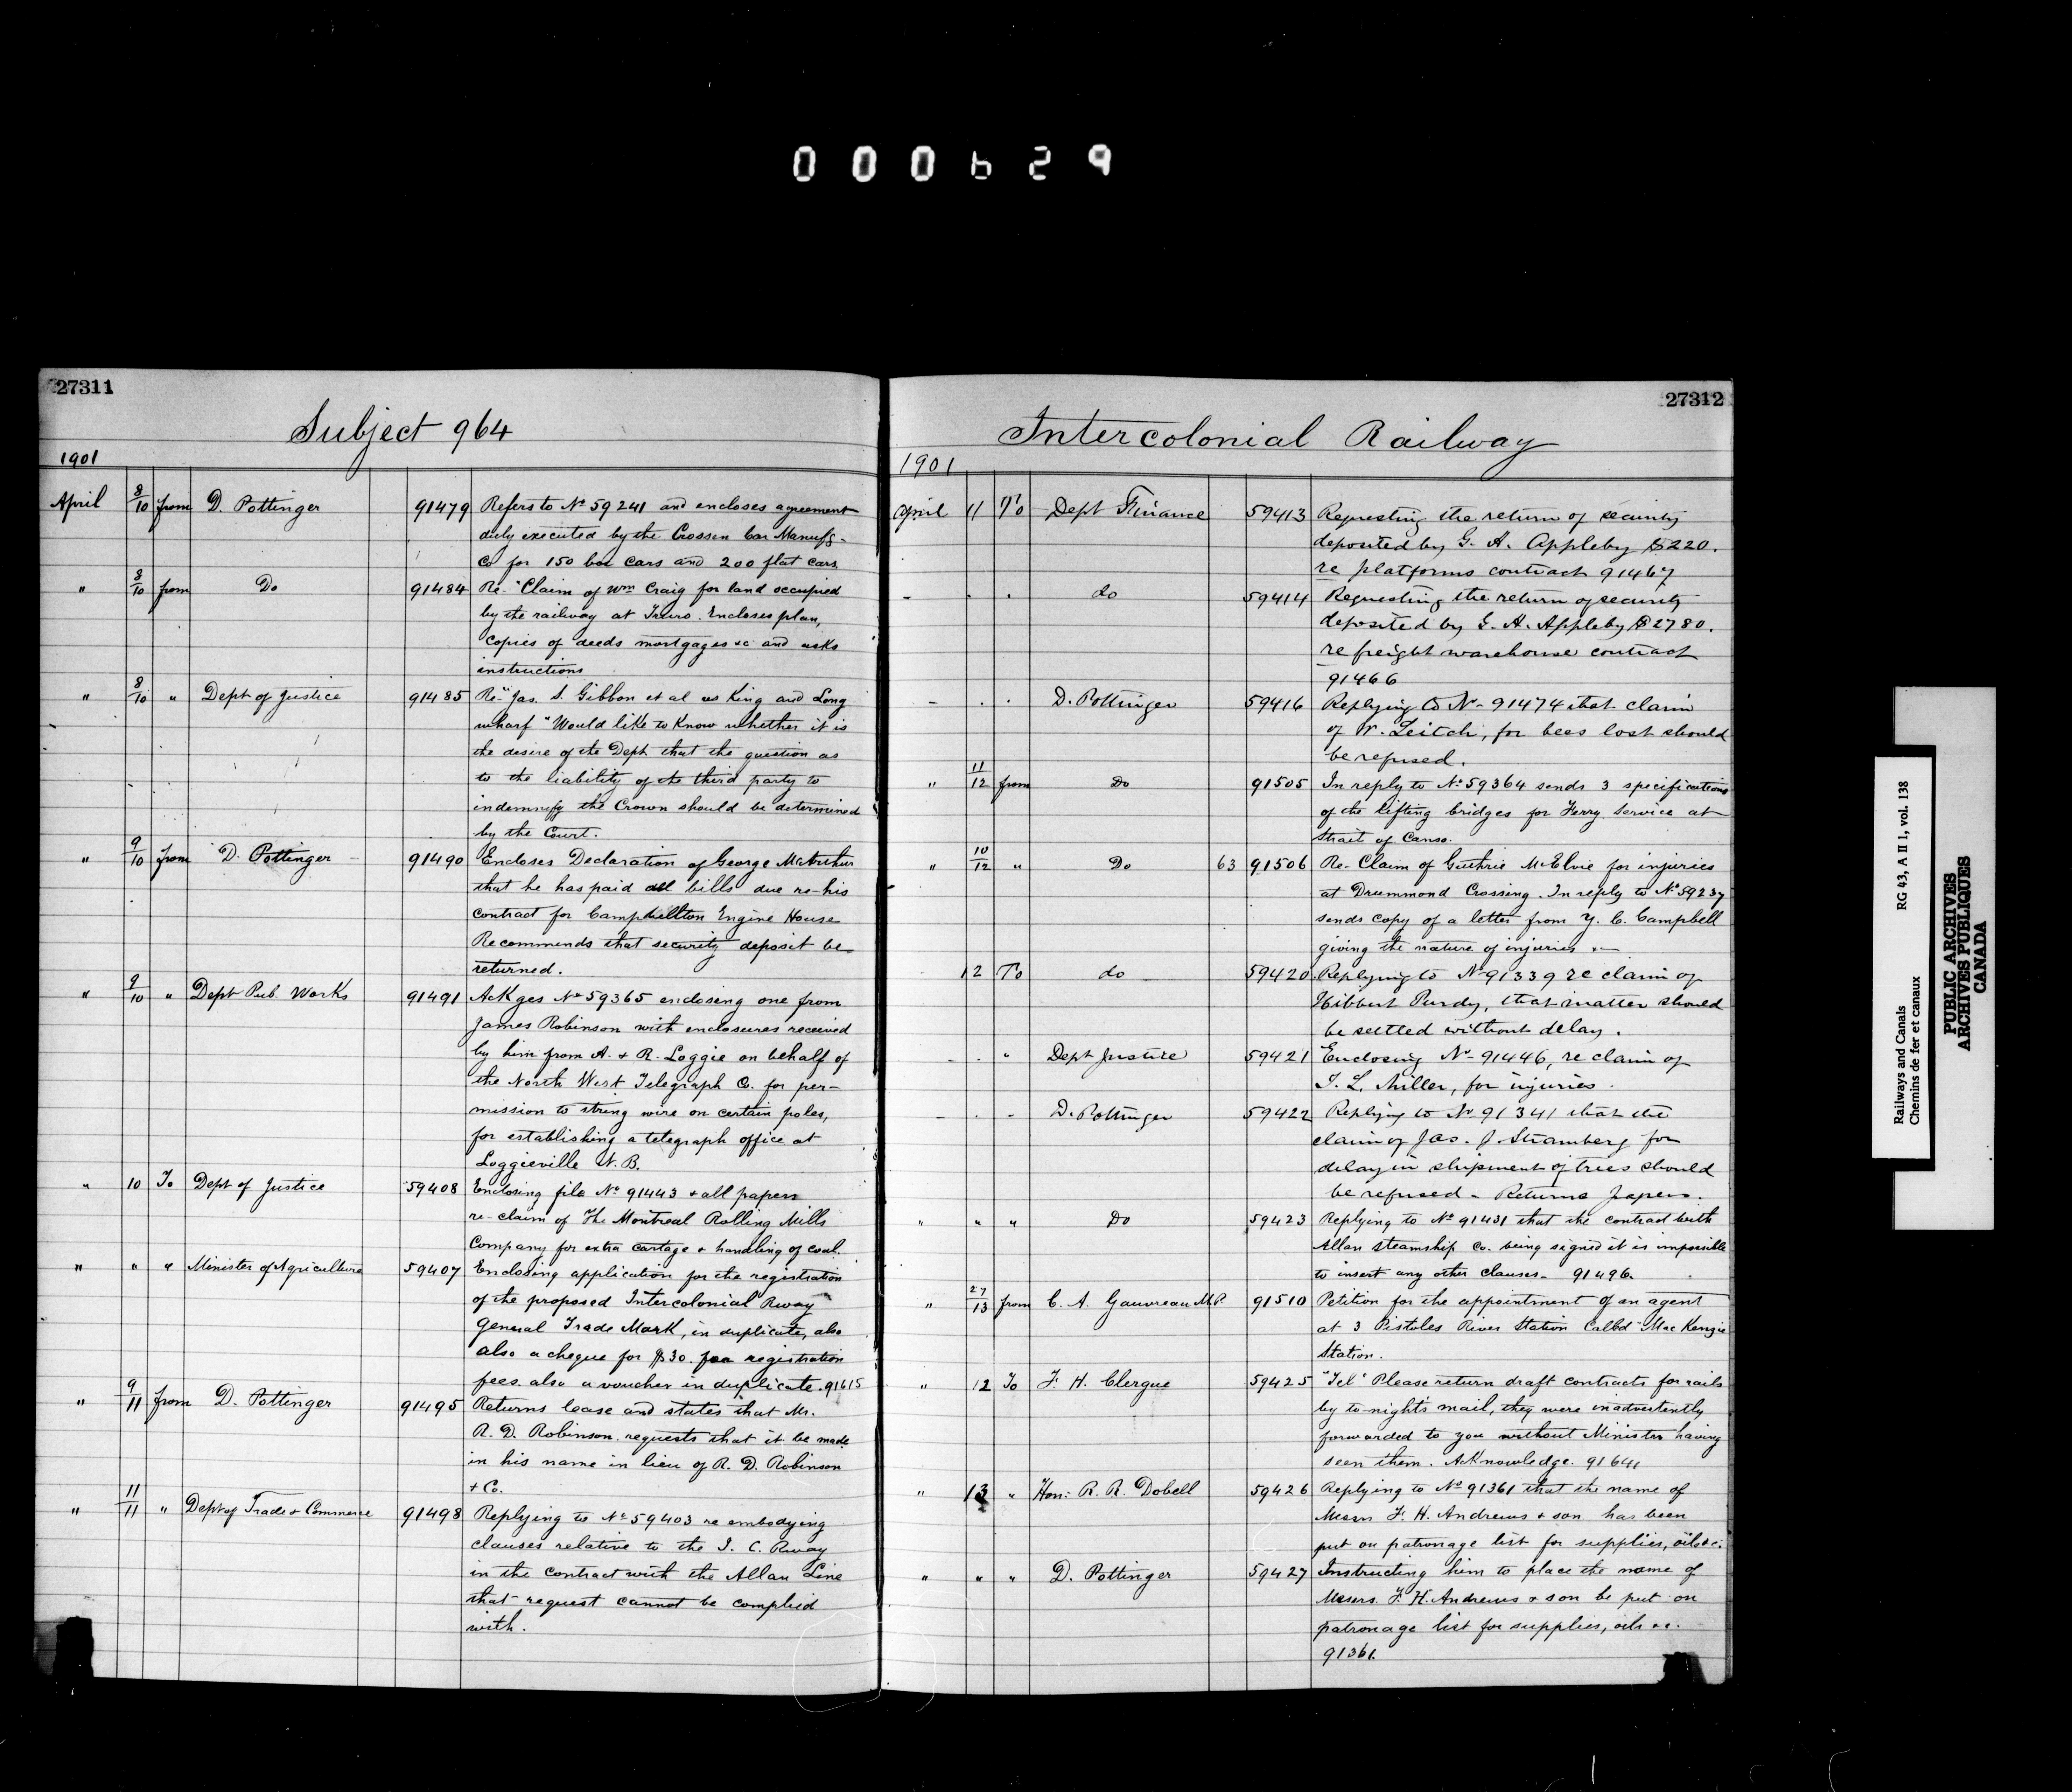 000629
27311
Subject 964
1901
April 8/10 from D. Pottinger 91479 Refers to No 59241 and encloses agreement
duly executed by the Crossen Car Manufg-
Co for 150 box cars and 200 flat cars.
" 8/10 from Do 91484 Re- "Claim of Wm Craig for land occupied
by the railway at Truro. Encloses plan,
copies of deeds mortgages &c and asks
instructions
" 8/10 " Dept of Justice 91485 Re- "Jas. S. Gibbon et al vs King and Long
wharf" Would like to know whether it is
the desire of the Dept that the question as
to the liability of the third party to
indemnify the Crown should be determined
by the Court.
" 9/10 from D. Pottinger 91490 Encloses Declaration of George McArthur
that he has paid all bills due re-his
contract for Campbellton Engine House
Recommends that security deposit be
returned.
" 9/10 " Dept Pub. Works 91491 Ackges No 59365 enclosing one from
James Robinson with enclosures received
by him from A. & R. Loggie on behalf of
the North West Telegraph Co. for per-
mission to string wire on certain poles,
for establishing a telegraph office at
Loggieville N.B.
" 10 To Dept of Justice 59408 Enclosing file No 91443 & all papers
re-claim of The Montreal Rolling Mills
Company for extra cartage & handling of coal.
" " " Minister of Agriculture 59407 Enclosing application for the registration
of the proposed Intercolonial Rway
General Trade Mark, in duplicate, also
also a cheque for $30. for registration
fees. also a voucher in duplicate. 91615
" 9/11 from D. Pottinger 91495 Returns lease and states that Mr.
R. D. Robinson requests that it be made
in his name in lieu of R. D. Robinson
& Co.
" 11/11 " Dept of Trade & Commerce 91498 Replying to No 59403 re embodying
clauses relative to the I. C. Rway
in the contract with the Allan Line
that request cannot be complied
with.
27312
Intercolonial Railway
1901
April 11 To Dept Finance 59413 Requesting the return of security
deposited by G. A. Appleby $220.
re platforms contract 91467
- . . do 59414 Requesting the return of security
deposited by G. A. Appleby $2780.
re freight warehouse contract
91466
- . . D. Pottinger 59416 Replying to No- 91474 that claim
of W. Leitch, for bees lost should
be refused.
" 11/12 from Do 91505 In reply to No 59364 sends 3 specifications
of the lifting bridges for Ferry Service at
Strait of Canso.
" 10/12 " Do 63 91506 Re- Claim of Guthrie McElvie for injuries
at Drummond Crossing. In reply to No 59237
sends copy of a letter from Y. C. Campbell
giving the nature of injuries &c
12 To do 59420 Replying to No 91339 re claim of
Hibbert Purdy, that matter should
be settled without delay.
- . " Dept Justice 59421 Enclosing No- 91446, re claim of
T. L. Miller, for injuries.
- . - D. Pottinger 59422 Replying to No 91341 that the
claim of Jas. J. Stramberg for
delay in shipment of trees should
be refused - Returns papers.
" " " Do 59423 Replying to No 91431 that the contract with
Allan Steamship Co. being signed it is impossible
to insert any other clauses - 91496.
" 27/13 from C. A. Gauvreau M.P. 91510 Petition for the appointment of an agent
at 3 Pistoles River Station Called "MacKenzie
Station.
" 12 To F. H. Clergue 59425 "Tel" Please return draft contracts for rails
by to-night's mail, they were inadvertently
forwarded to you without Minister having
seen them. Acknowledge. 91641
" 13 " Hon: R. R. Dobell 59426 Replying to No 91361 that the name of
Messrs F. H. Andrews & son has been
put on patronage list for supplies, oils &c.
" " " D. Pottinger 59427 Instructing him to place the name of
Messrs. F. H. Andrews & son be put on
patronage list for supplies, oils &c.
91361.
Railways and Canals RG 43, A II 1, vol. 138
Chemins de fer et canaux
PUBLIC ARCHIVES
ARCHIVES PUBLIQUES
CANADA